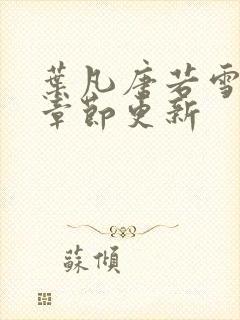 葉凡唐若雪
章節更新
蘇傾